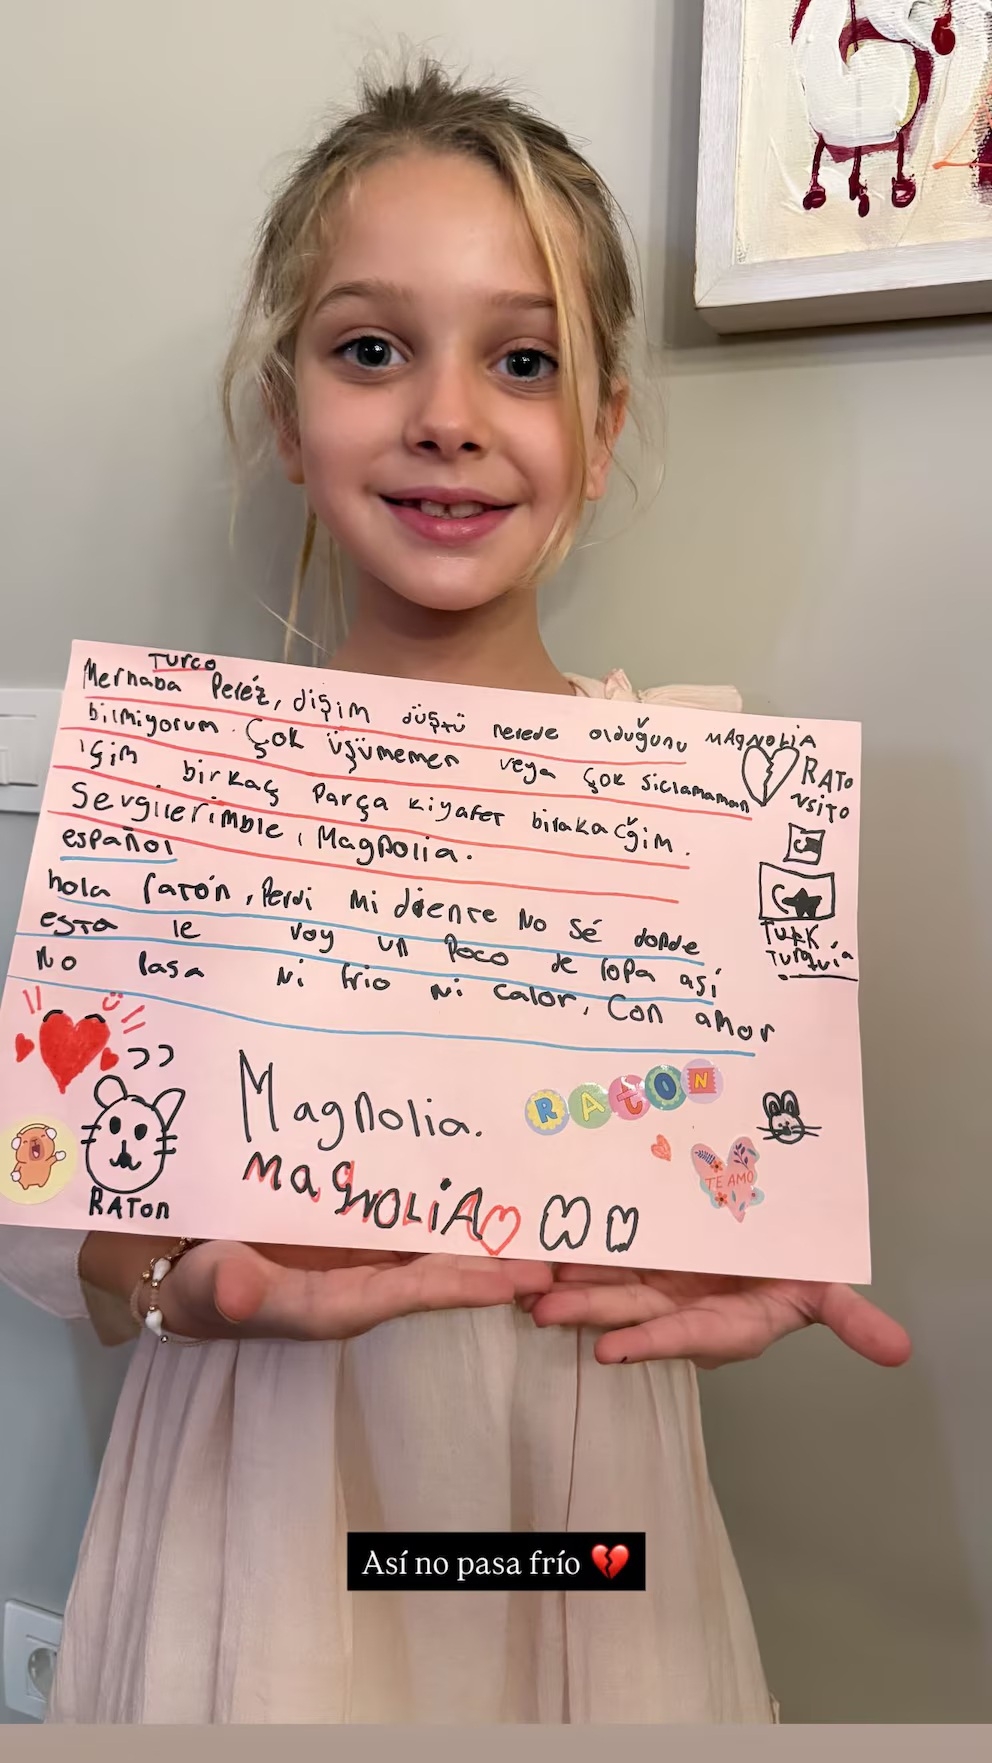 Turco
Merhaba Peréz, dişim düştü nerede olduğunu
bilmiyorum. Çok üşümemen veya çok siclamaman
için birkaç parça kiyafet birakacğim.
Sevgilerimble, Magnolia.
español
hola ratón, Perdi mi diente No sé donde
esta le voy un poco de ropa así
No pasa Ni frio Ni calor, Con amor
Magnolia.
MAgNOLiA
MAGNOLIA
RATo
NSiTO
TURK
Turquía
RATON
RATON
TE AMO
Así no pasa frío 💔